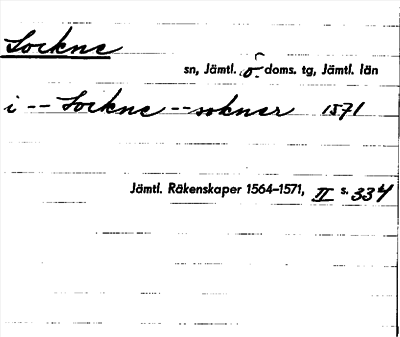 Lockne
sn, Jämtl. ö. doms. tg, Jämtl. län
i -- Lockne -- soknar 1571
Jämtl. Räkenskaper 1564-1571, II s. 334